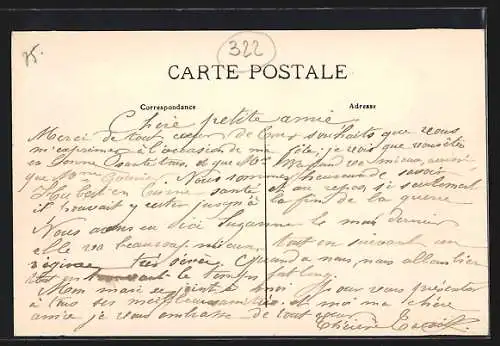 75.
322
CARTE POSTALE
Correspondance
Adresse
Chère petite amie
Merci de tout cœur de tous souhaits que vous
m'exprimez à l'occasion de ma fête, je vois que vous êtes
en bonne santé tous, et que Mr va mieux, ainsi
que Mme Nous sommes heureux de savoir
Hubert en bonne santé et au repos, si seulement
il pouvait y rester jusqu'à la fin de la guerre
Nous avons eu ici Suzanne le mois dernier
elle va beaucoup mieux tout en suivant un
régime très sévère. Quand à nous, nous allons bien
tout en trouvant le temps fort long.
Mon mari se joint à moi pour vous présenter
à tous ses meilleures amitiés et moi ma chère
amie je vous embrasse de tout cœur